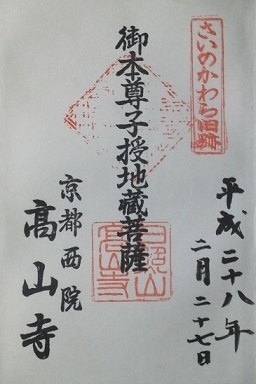 さいのかわら旧跡
平成二十八年
二月二十七日
御本尊子授地蔵菩薩
京都西院
高山寺